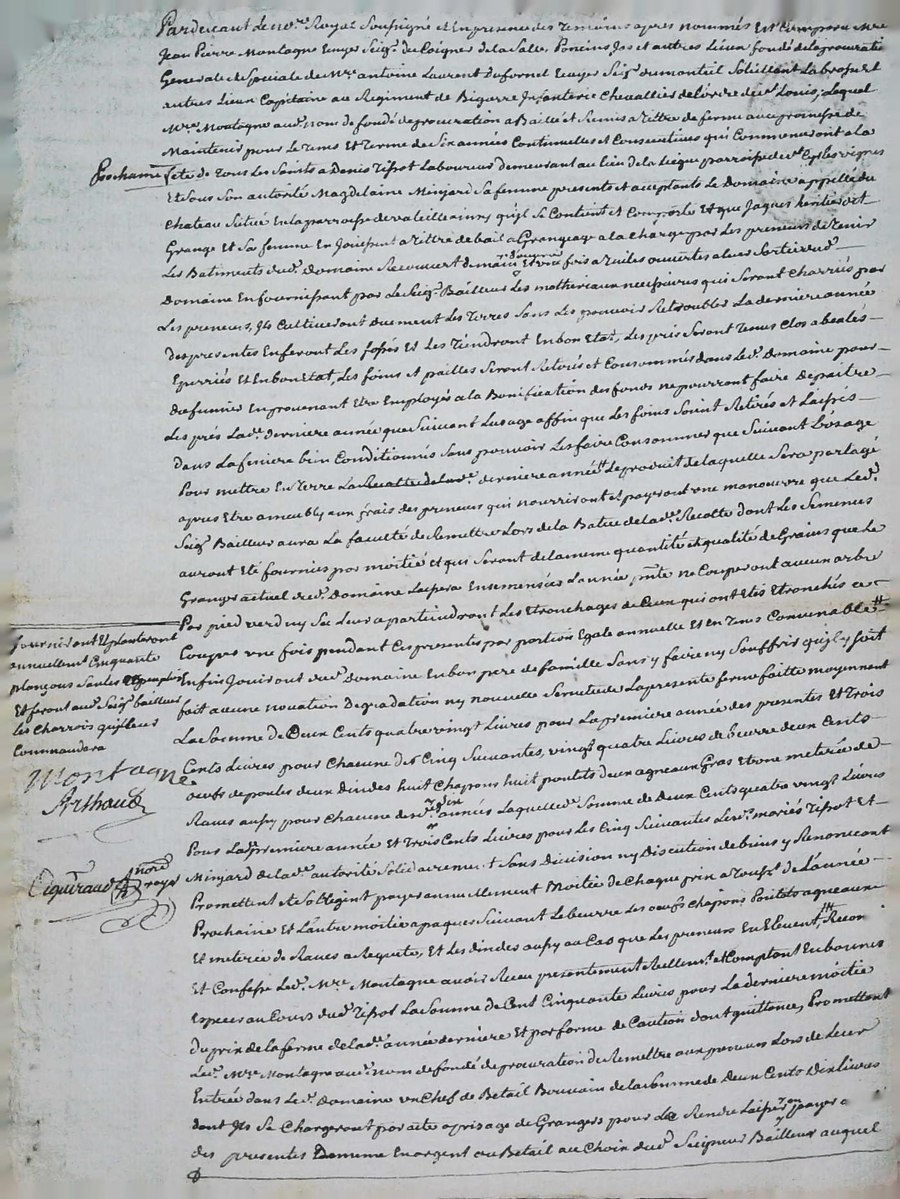 Pardevant le no.re Royal Soussigné et En presence des Temoins apres nommés Est Comparu M.re
Jean Pierre Montagne Ecuyer Seig.r de Poncins et autres Lieux fondé de la procuration
Generale et Speciale de M.re antoine Laurent Dufornel Ecuyer Seig.r dumonteil Solillant Labrosse et
autres Lieux Capitaine au Regiment de Bigorre Infanterie Chevallier de l'ordre de S.t Louis, Lequel
M.re Montagne aud. nom de fondé de procuration a Baillé et Remis a Tittre de ferme avec promesse de
Maintenir pour le Tems et Terme de Six années Continuelles et Consecutives qui Commenceront a la
Prochaine fete de Tous Les Saints a Denis Tissot Laboureur demeurant au lieu de la parroisse de S.t Cyr les vignes
Et Sous Son autorité Magdelaine Minjard Sa femme presents et acceptants Le Domaine appellé du
Chateau Situé En la parroisse de valeille ainsy qu'jl Se Contient et Comporte Et que Jaques
Grange Et Sa femme En Jouissent a Tittre de bail a Grangeage a la Charge par Les preneurs de Tenir
Les Batiments dud. Domaine Recouvert de main Et une fois a Tuiles ouvertes a leur Sortie dud.
Domaine En fournissant par Le Seig.r Bailleur Les matteriaux necessaires qui Seront Charriés par
Les preneurs, Jls Cultiveront Duement Les Terres Sans Les pouvoir Retroubler La derniere année
des presentes En feront Les fossés Et Les Tiendront En bon Etat, Les prés Seront Tenus Clos
Eperriés Et En bon Etat, Les foins et pailles Seront Retirés et Consommés dans Led. Domaine pour
Du fumier En provenant Etre Employés a la Bonification des fonds ne pourront faire Depaitre
Les prés Lad. derniere année que Suivant Lusage affin que Les foins Soint Retirés et Laissés
Dans La feniere bien Conditionnés Sans pouvoir Les faire Consommer que Suivant L'usage
Pour mettre En Terre La Recolte de lad. derniere année Le produit de laquelle Sera partagé
apres Etre ameubly aux frais des preneurs qui nourriront et payront une manoeuvre que Led.
Seig.r Bailleur aura La faculté de Remettre Lors de la Batue de lad. Recolte dont Les Semences
auront Eté fournies par moitié et qui Seront de la meme quantité et qualité de Grains que Le
Granger actuel dud. Domaine Laissera Ensemensés L'année p.nte ne Couperont aucun arbre
Par pied verd ny Sec Leurs apartiendront Les Etronchages de Ceux qui ont Etés Etronchés et
Coupés une fois pendant Ces presentes par portion Egale annuelle Et en Tems Convenable
Enfin Jouiront dud. Domaine En bon pere de famille Sans y faire ny Souffrir qu'jl y Soit
fait aucune novation Degradation ny nouvelle Servitude La presente ferme faitte moyennant
La Somme de Deux Cents quatre vingt Livres pour La premiere année des presentes Et Trois
Cents Livres pour Chacune des Cinq Suivantes, vingt quatre Livres de beurre deux Cents
oeufs de poules deux Dindes huit Chapons huit poulets deux agneaux Gras Et une meterée de
Raves aussy pour Chacune des années Laquelle Somme de Deux Cents quatre vingt Livres
Pour Lad. premiere année Et Trois Cents Livres pour Les Cinq Suivantes Lesd. mariés Tissot Et
Minjard de lad. autorité Solidairement Sans Division ny Discution de biens y Renoncant
Promettent et S'obligent payer annuellement Moitié de Chaque prix a de L'année
Prochaine et Lautre moitié a paques Suivant Le beurre Les oeufs Chapons Poulets agneaux
Et meterée de Raves a Requete, Et Les dindes aussy au Cas que Les preneurs En Elevent,
Et Confesse Led. M.re Montagne avoir Receu presentement Reellem.t et Comptant En bonnes
Especes au Cours dud. Tissot La Somme de Cent Cinquante Livres pour La derniere moitié
du prix de la ferme de lad. année derniere Et par forme de Caution dont quittance, Promettant
Led. M.re Montagne aud. nom de fondé de procuration de Remettre aux preneurs Lors de Leur
Entrée dans Led. Domaine un Chef de Betail Bouvain de la Somme de Deux Cents Dix livres
dont Jls Se Chargeront par acte a prisage de Grangers pour Le Rendre Laisser ou payer a
des presentes En argent ou Betail au Choix dud. Seigneur Bailleur auquel
fourniront Et planteront
annuellem.t Cinquante
plançons Saules et peupliers
Et feront aud. Seig.r bailleur
les charrois qu'jl leur
Commandera
Montagne
Arthaud
no.re
royal